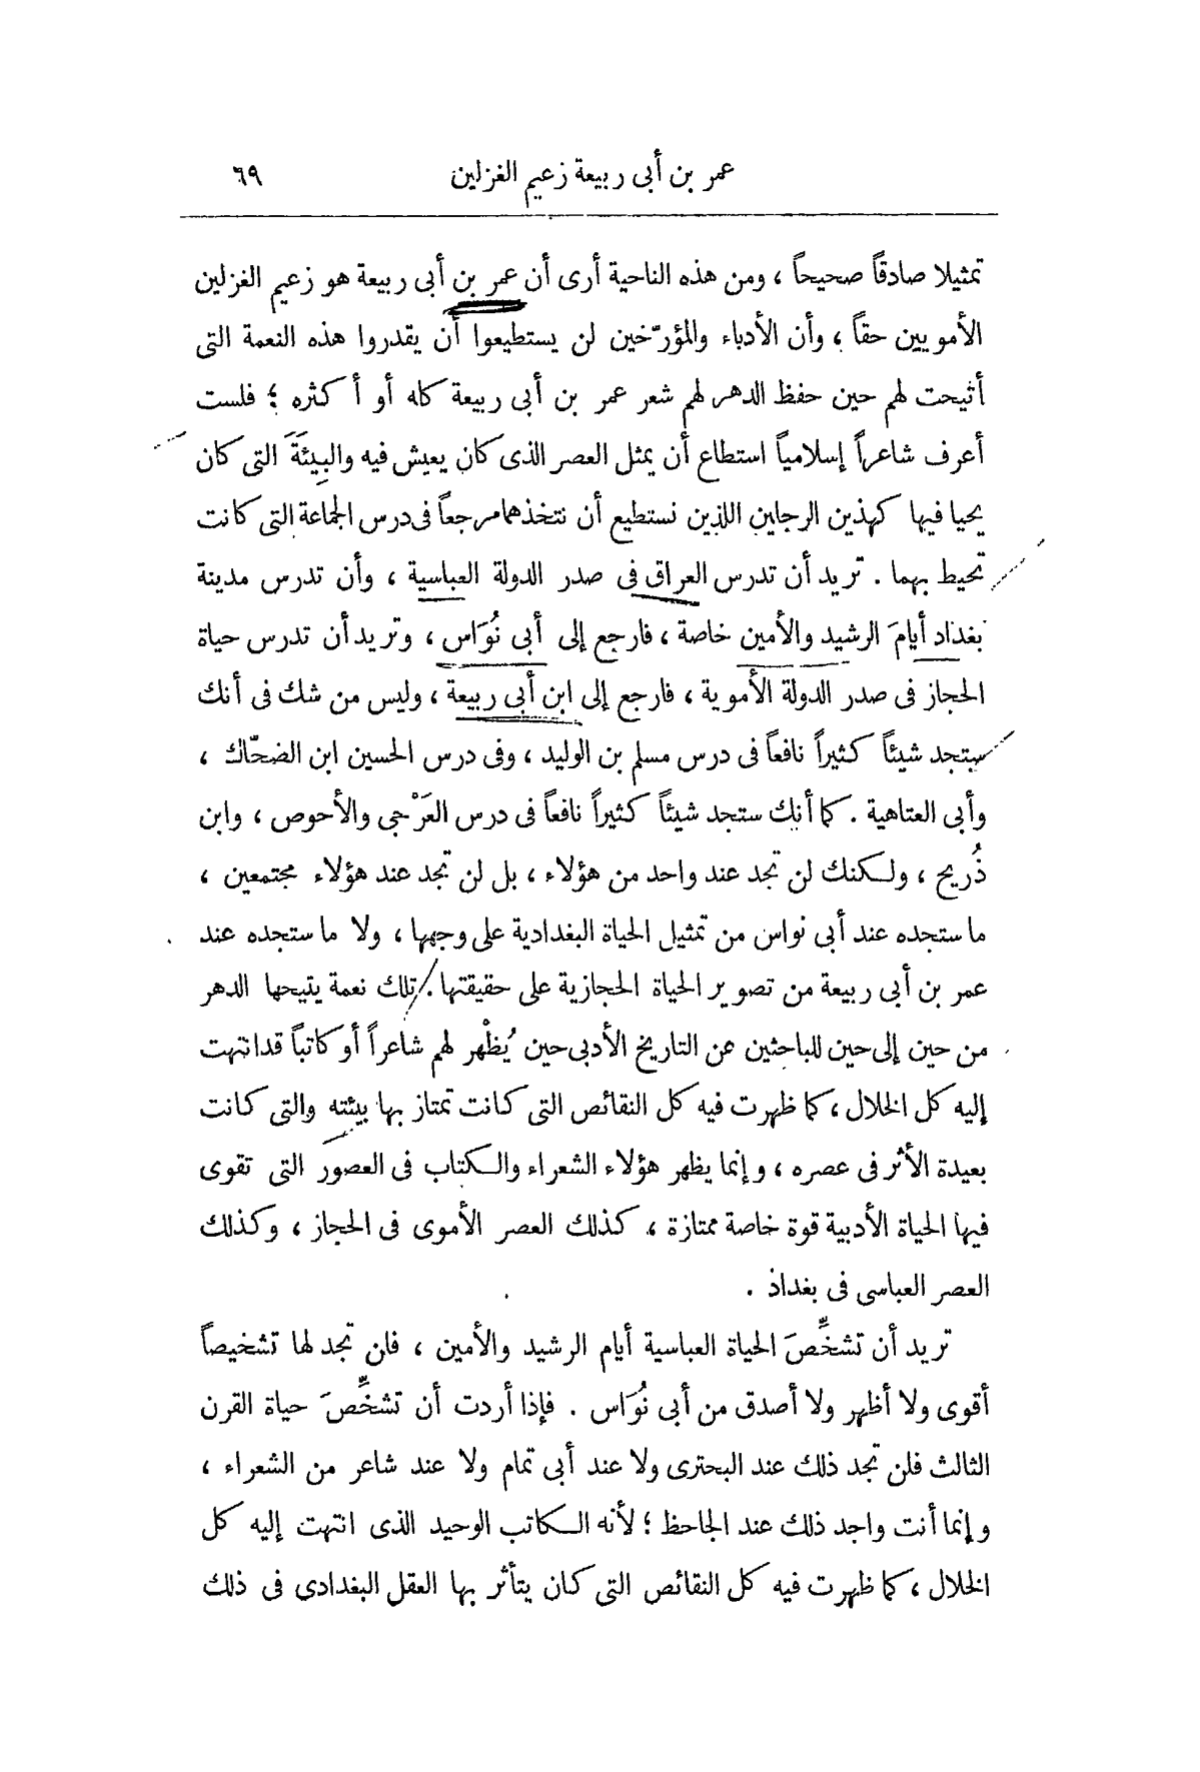 عمر بن أبى ربيعة زعيم الغزلين ٦٩
تمثيلا صادقاً صحيحاً ، ومن هذه الناحية أرى أن عمر بن أبى ربيعة هو زعيم الغزلين
الأمويين حقاً ، وأن الأدباء والمؤرّخين لن يستطيعوا أن يقدروا هذه النعمة التى
أثيحت لهم حين حفظ الدهر لهم شعر عمر بن أبى ربيعة كله أو أكثره ؛ فلست
أعرف شاعراً إسلامياً استطاع أن يمثل العصر الذى كان يعيش فيه والبِيئَةَ التى كان
يحيا فيها كهذين الرجلين اللذين نستطيع أن نتخذهما مرجعاً فى درس الجماعة التى كانت
تحيط بهما . تريد أن تدرس العراق فى صدر الدولة العباسية ، وأن تدرس مدينة
بغداد أيامَ الرشيد والأمين خاصة ، فارجع إلى أبى نُوَاس ، وتريد أن تدرس حياة
الحجاز فى صدر الدولة الأموية ، فارجع إلى ابن أبى ربيعة ، وليس من شك فى أنك
ستجد شيئاً كثيراً نافعاً فى درس مسلم بن الوليد ، وفى درس الحسين ابن الضحّاك ،
وأبى العتاهية . كما أنك ستجد شيئاً كثيراً نافعاً فى درس العَرْجى والأحوص ، وابن
ذُريح ، ولكنك لن تجد عند واحد من هؤلاء ، بل لن تجد عند هؤلاء مجتمعين ،
ما ستجده عند أبى نواس من تمثيل الحياة البغدادية على وجهها ، ولا ما ستجده عند
عمر بن أبى ربيعة من تصوير الحياة الحجازية على حقيقتها . تلك نعمة يتيحها الدهر
من حين إلى حين للباحثين عن التاريخ الأدبى حين يُظْهر لهم شاعراً أو كاتباً قد انتهت
إليه كل الخلال ، كما ظهرت فيه كل النقائص التى كانت تمتاز بها بيئته والتى كانت
بعيدة الأثر فى عصره ، وإنما يظهر هؤلاء الشعراء والكتاب فى العصور التى تقوى
فيها الحياة الأدبية قوة خاصة ممتازة ، كذلك العصر الأموى فى الحجاز ، وكذلك
العصر العباسى فى بغداذ .
تريد أن تشخِّصَ الحياة العباسية أيام الرشيد والأمين ، فلن تجد لها تشخيصاً
أقوى ولا أظهر ولا أصدق من أبى نُوَاس . فإذا أردت أن تشخِّصَ حياة القرن
الثالث فلن تجد ذلك عند البحترى ولا عند أبى تمام ولا عند شاعر من الشعراء ،
وإنما أنت واجد ذلك عند الجاحظ ؛ لأنه الكاتب الوحيد الذى انتهت إليه كل
الخلال ، كما ظهرت فيه كل النقائص التى كان يتأثر بها العقل البغدادى فى ذلك